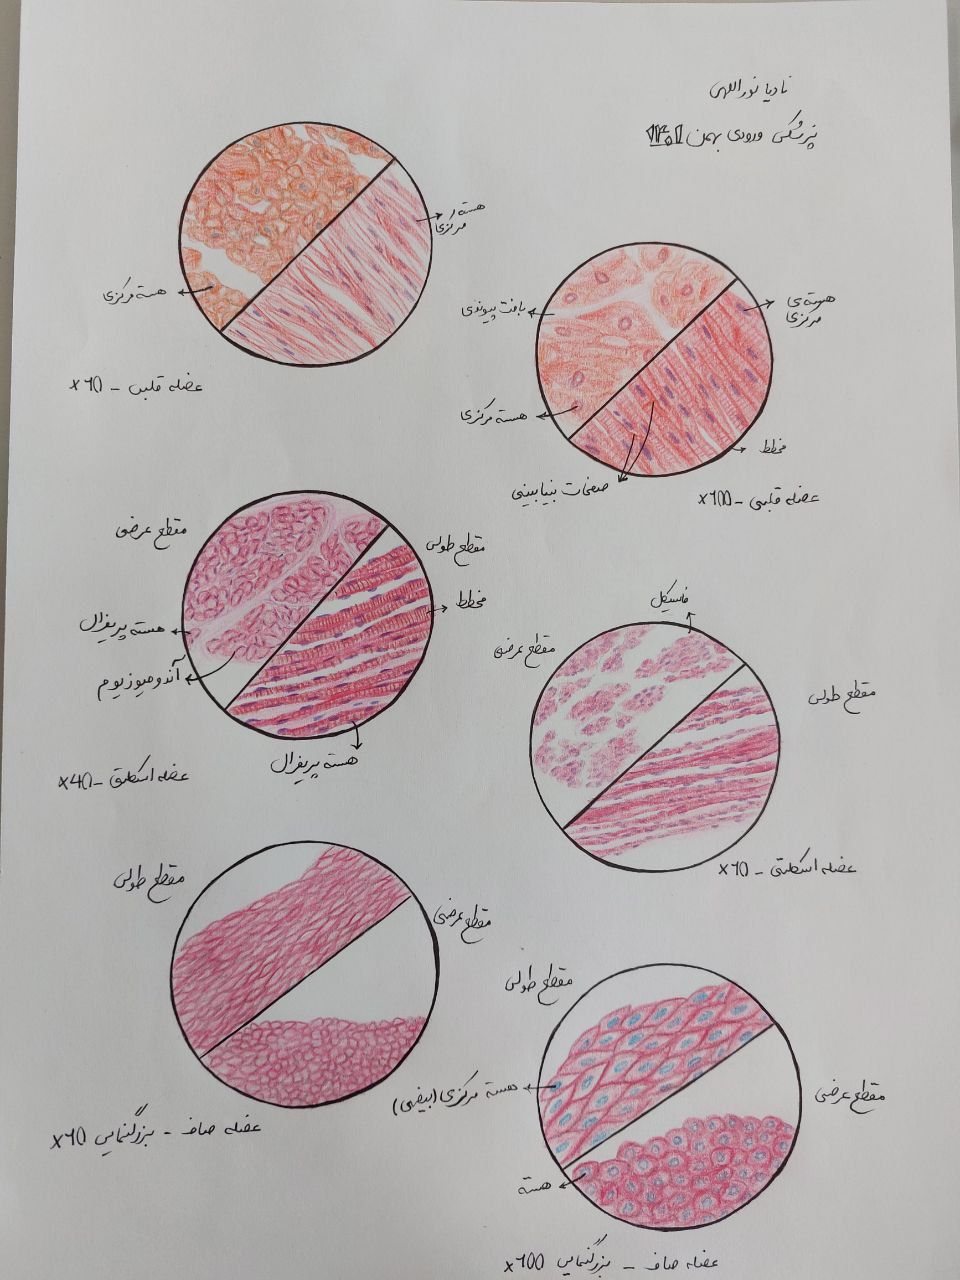 نادیا نوراللهی
پزشکی ورودی بهمن ۱۴۰۱
هسته ی
مرکزی
هسته مرکزی
عضله قلبی - x10
بافت پیوندی
هسته ی
مرکزی
هسته مرکزی
مخطط
صفحات بینابینی
عضله قلبی - x100
مقطع عرضی
مقطع طولی
مخطط
هسته پریفرال
آندومیوزیوم
هسته پریفرال
عضله اسکلتی - x40
فاسیکل
مقطع عرضی
مقطع طولی
عضله اسکلتی - x10
مقطع طولی
مقطع عرضی
عضله صاف - بزرگنمایی x10
مقطع طولی
هسته مرکزی (بیضی)
مقطع عرضی
هسته
عضله صاف - بزرگنمایی x100